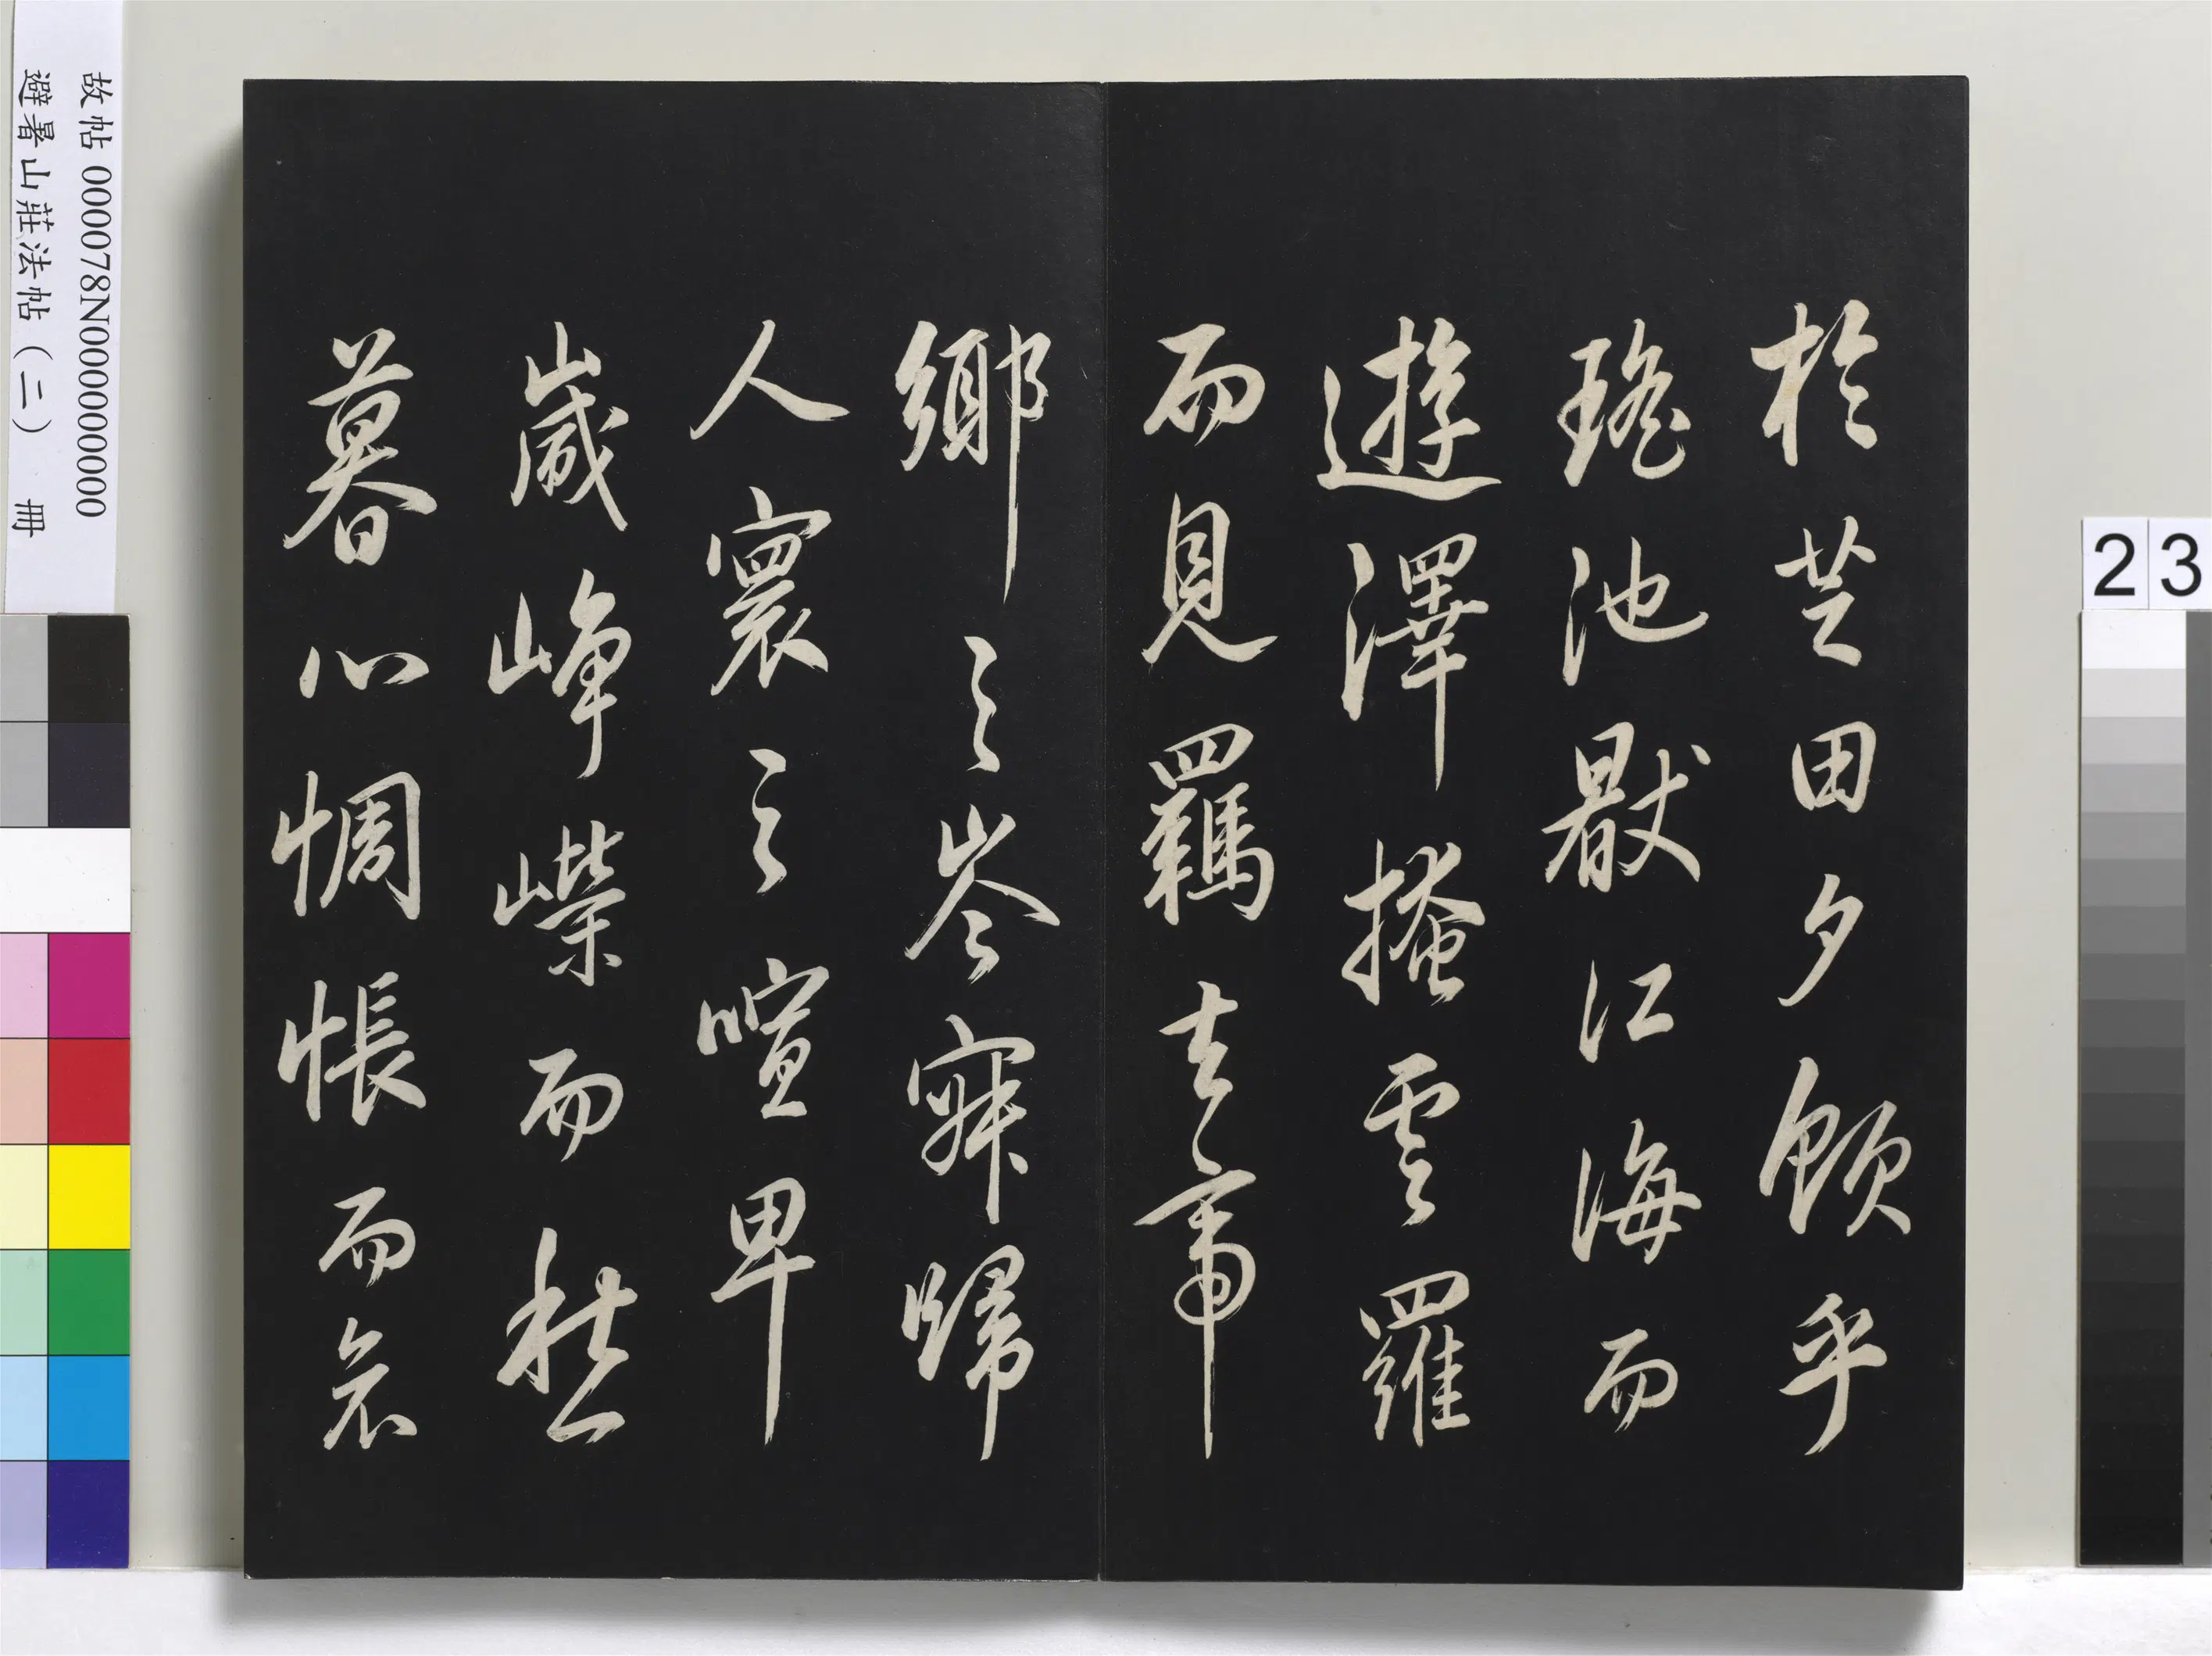 於芝田夕飲乎
瑤池猒江海而
遊澤掩雲羅
而見羈去帝
鄉之岑寂歸
人寰之喧卑
歲崢嶸而愁
暮心惆悵而哀
故帖 000078N000000000
避暑山莊法帖(二) 冊
23